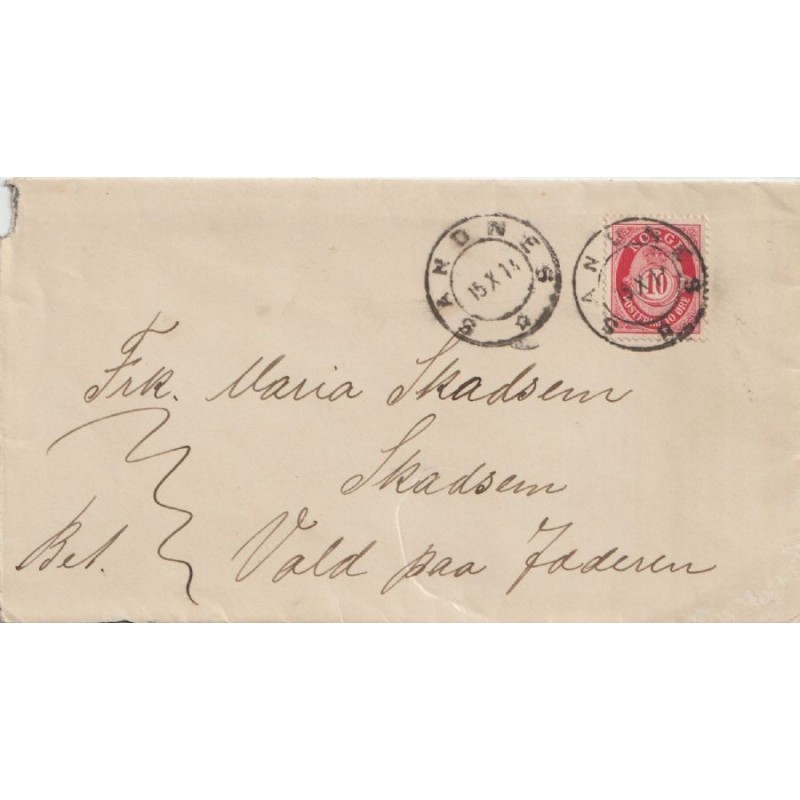 SANDNES
15 X 13
SANDNES
NORGE
10
POSTFRIM 10 ØRE
Frk. Maria Skadsem
Skadsem
Bet. Vold paa Jæderen